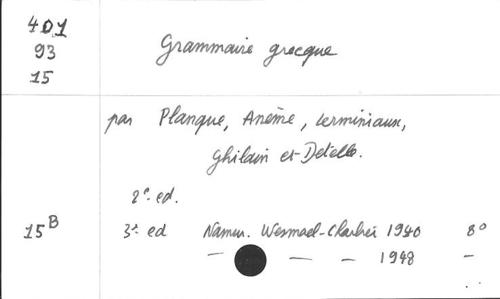 401
93
15
Grammaire grecque
par Planque, Anème, Lerminiaux,
Ghilain et Detelle.
2e. ed.
15B 3e ed Namur. Wesmael-Charlier 1940 8°
— — — 1948 —